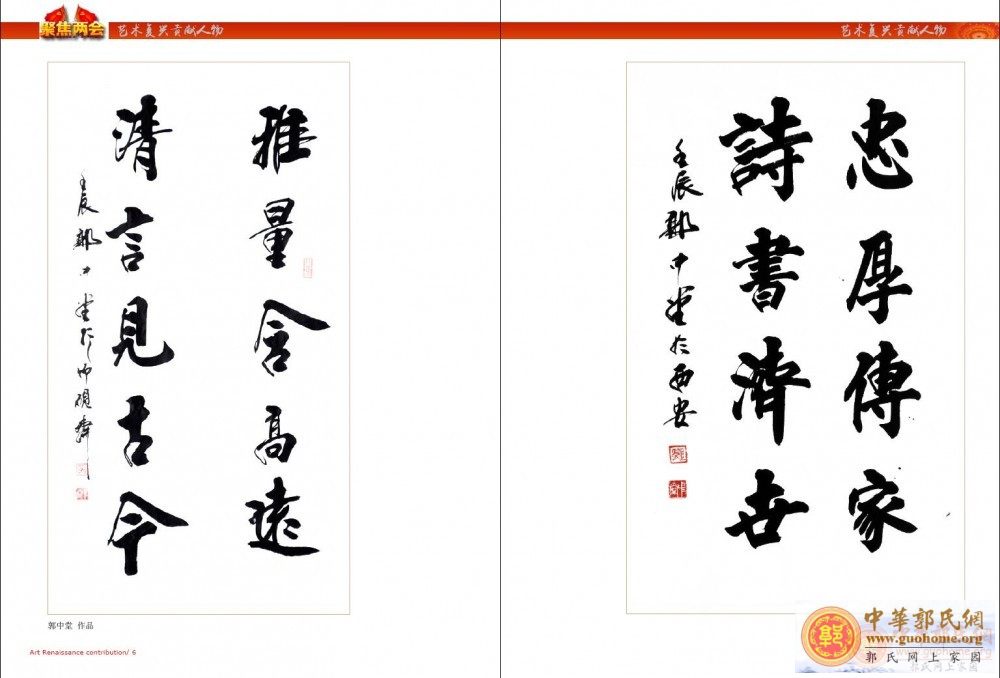 聚焦两会
艺术复兴贡献人物
雅量含高遠
清言見古今
壬辰郭中堂於
郭中堂 作品
Art Renaissance contribution/ 6
艺术复兴贡献人物
忠厚傳家
詩書濟世
壬辰郭中堂於西安
中華郭氏網
www.guohome.org
郭氏网上家园